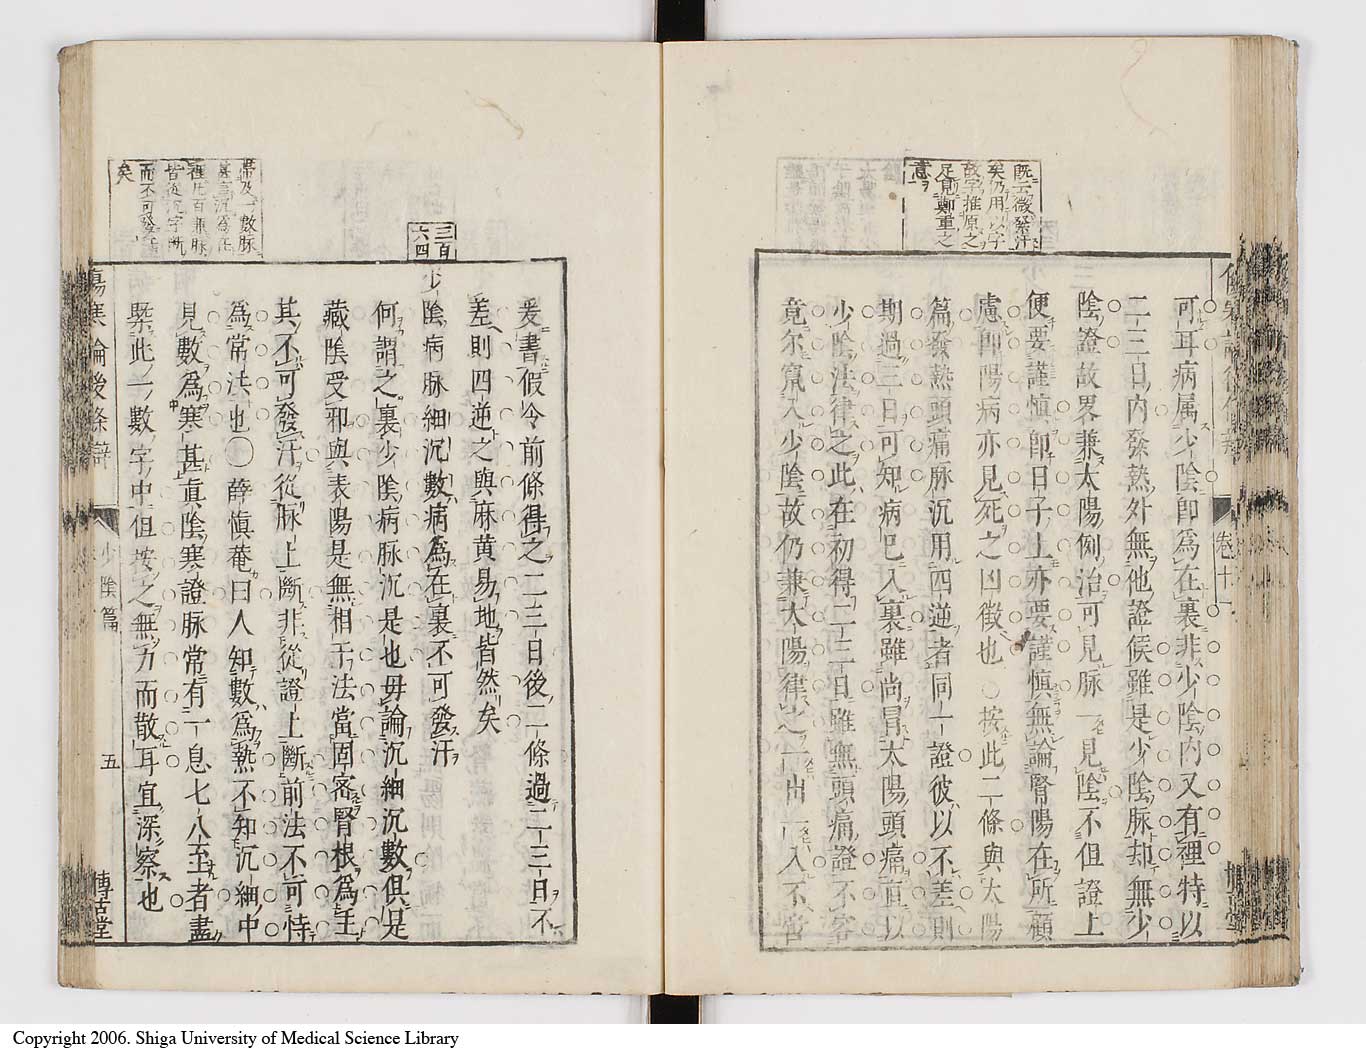 既云微發汗
矣仍用以字
故字推原之
足見鄭重之
意
可耳病属少陰即為在裏非少陰内又有裡特以
二三日内發熱外無他證候雖是少陰脉却無少
陰證故畧兼太陽例治可見脉一見陰不但證上
便要謹慎即日子上亦要謹慎無論腎陽在所顧
慮即陽病亦見死之凶徴也○按此二條與太陽
篇發熱頭痛脉沉用四逆者同一證彼以不差則
期過三日可知病已入裏雖尚冒太陽頭痛直以
少陰法律之此在初得二三日雖無頭痛證不容
竟尔竄入少陰故仍兼太陽律之一出一入不啻
卷十一
爰書假令前條得之二三日後二條過二三日不
差則四逆之與麻黄易地皆然矣
三百
六四
少陰病脉細沉數病為在裏不可發汗
何謂之裏少陰病脉沉是也毋論沉細沉數俱是
藏陰受邪與表陽是無相干法當固密腎根為主
其不可發汗從脉上斷非從證上斷前法不可恃
為常法也○薛慎菴曰人知數為熱不知沉細中
見數為寒甚真陰寒證脉常有一息七八至者盡
㮣此一數字中但按之無力而散耳宜深察也
甚言沉為在
裡凡百兼脉
皆從沉字斷
而不可發汗
矣
傷寒論後條辯
少陰篇
五
博古堂
Copyright 2006. Shiga University of Medical Science Library